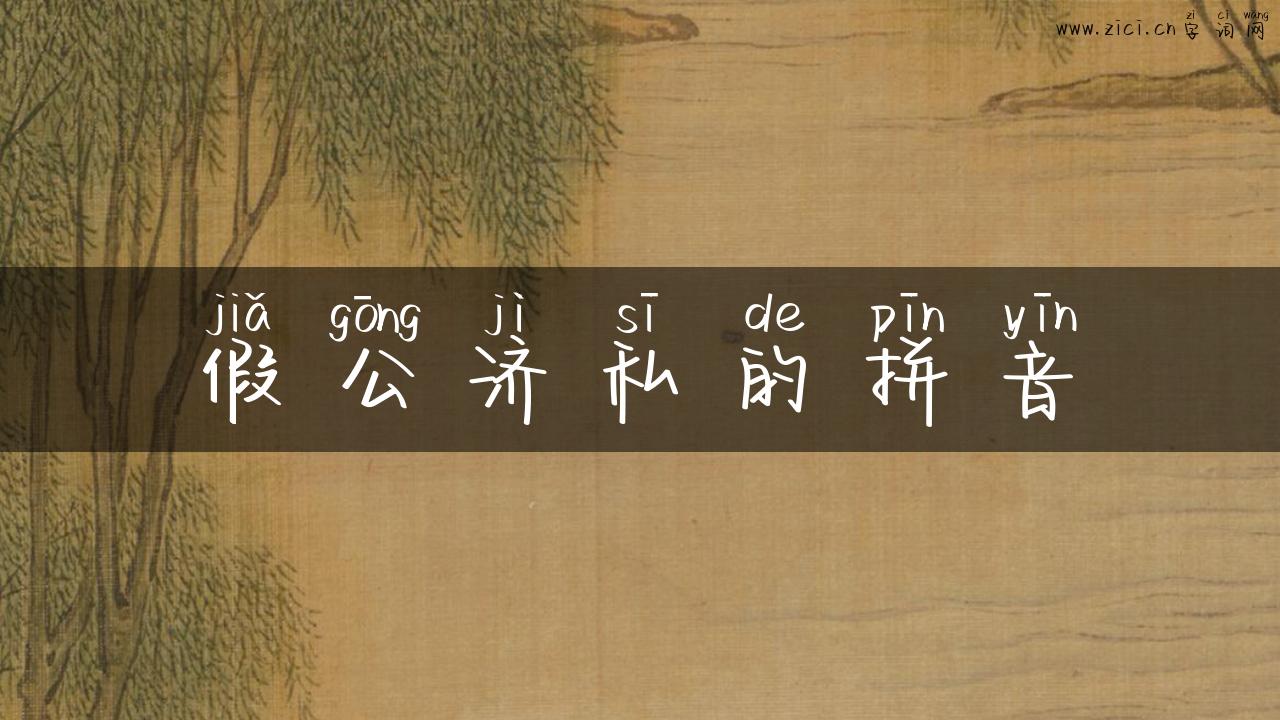 zì cí wǎng
www.zici.cn 字词网
jiǎ gōng jì sī de pīn yīn
假公济私的拼音